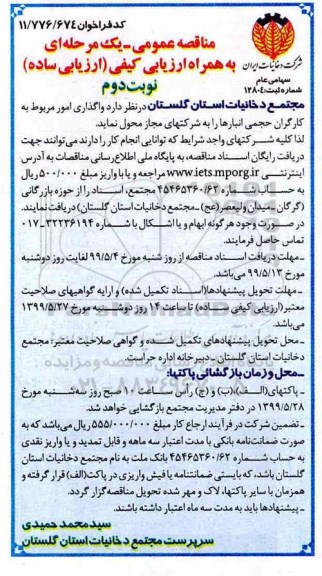 کد فراخوان ۱۱/۷۷۶/۶۷۴
مناقصه عمومی - یک مرحله‌ای
به همراه ارزیابی کیفی (ارزیابی ساده)
نوبت دوم
شرکت دخانیات ایران
سهامی عام
شماره ثبت: ۱۲۸۰۴
مجتمع دخانیات استان گلستان درنظر دارد واگذاری امور مربوط به
کارگران حجمی انبارها را به شرکتهای مجاز محول نماید.
لذا کلیه شرکتهای واجد شرایط که توانایی انجام کار را دارند می‌توانند جهت
دریافت رایگان اسناد مناقصه، به پایگاه ملی اطلاع‌رسانی مناقصات به آدرس
اینترنتی www.iets.mporg.ir مراجعه و یا با واریز مبلغ ۵۰۰/۰۰۰ ریال
به حساب شماره ۴۵۴۶۵۳۶۰/۶۲ مجتمع، اسناد را از حوزه بازرگانی
(گرگان - میدان ولیعصر(عج) - مجتمع دخانیات استان گلستان) دریافت نمایند.
در صورت وجود هرگونه ابهام و یا اشکال با شماره ۳۲۲۳۶۱۹۴-۰۱۷
تماس حاصل فرمایند.
-مهلت دریافت اسناد مناقصه از روز شنبه مورخ ۹۹/۵/۴ لغایت روز دوشنبه
مورخ ۹۹/۵/۱۳ می‌باشد.
-مهلت تحویل پیشنهادها (اسناد تکمیل شده) و ارایه گواهیهای صلاحیت
معتبر (ارزیابی کیفی ساده) تا ساعت ۱۴ روز دوشنبه مورخ ۱۳۹۹/۵/۲۷
می‌باشد.
-محل تحویل پیشنهادهای تکمیل شده و گواهی صلاحیت معتبر: مجتمع
دخانیات استان گلستان - دبیرخانه اداره حراست.
-محل و زمان بازگشائی پاکتها:
- پاکتهای (الف)، (ب) و (ج) رأس ساعت ۱۰ صبح روز سه‌شنبه مورخ
۱۳۹۹/۵/۲۸ در دفتر مدیریت مجتمع بازگشایی خواهد شد.
-تضمین شرکت در فرآیند ارجاع کار مبلغ ۵۵۵/۰۰۰/۰۰۰ ریال می‌باشد که به
صورت ضمانت‌نامه بانکی با مدت اعتبار سه ماهه و قابل تمدید و یا واریز نقدی
به حساب شماره ۴۵۴۶۵۳۶۰/۶۲ بانک ملت به نام مجتمع دخانیات استان
گلستان باشد، که بایستی ضمانتنامه یا فیش واریزی در پاکت (الف) قرار گرفته و
همزمان با سایر پاکتها، لاک و مهر شده تحویل مناقصه‌گزار گردد.
- پیشنهادها باید به مدت سه ماه اعتبار داشته باشند.
سید محمد حمیدی
سرپرست مجتمع دخانیات استان گلستان